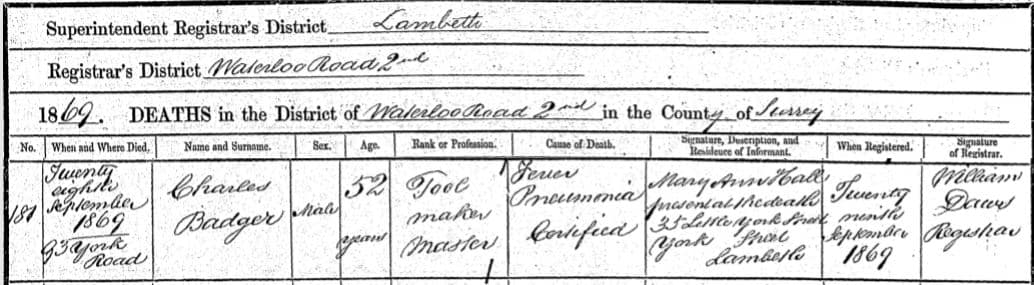 Superintendent Registrar's District Lambeth
Registrar's District Waterloo Road 2nd
1869. DEATHS in the District of Waterloo Road 2nd in the County of Surrey
No. When and Where Died. Name and Surname. Sex. Age. Rank or Profession. Cause of Death. Signature, Description, and Residence of Informant. When Registered. Signature of Registrar.
181
Twenty
eighth
September
1869
93 York
Road
Charles
Badger
Male
52
years
Tool
maker
Master
Fever
Pneumonia
Certified
Mary Ann Hall
present at the death
35 Little York Street
York Street
Lambeth
Twenty
ninth
September
1869
William
Daws
Registrar